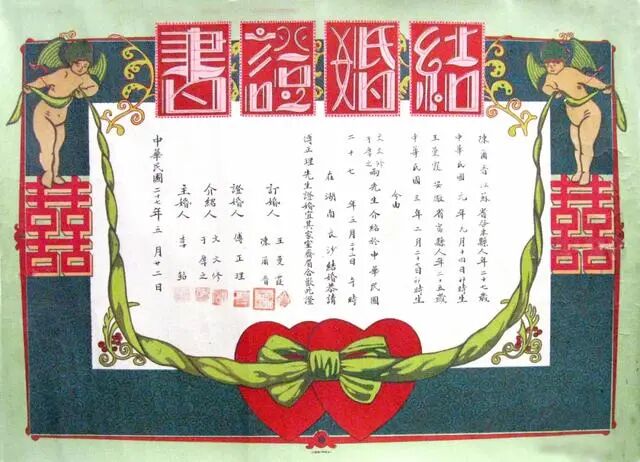 結婚證書
陳爾 江蘇省 縣人年二十七歲
中華民國 元年九月十四日卯時生
王蔓 安徽省 縣人年二十五歲
中華民國 三年二月二十日卯時生
今由
文文修
于 之
兩先生介紹於中華民國
二十七 年 五月二十二日 午 時
在 湖南長沙 結婚恭請
傅正理先生證婚宜其家室 眉合歡此證
訂婚人 王蔓
陳爾
證婚人 傅正理
介紹人 文文修
于 之
主婚人 李
中華民國二十七年五月廿二日
囍
囍